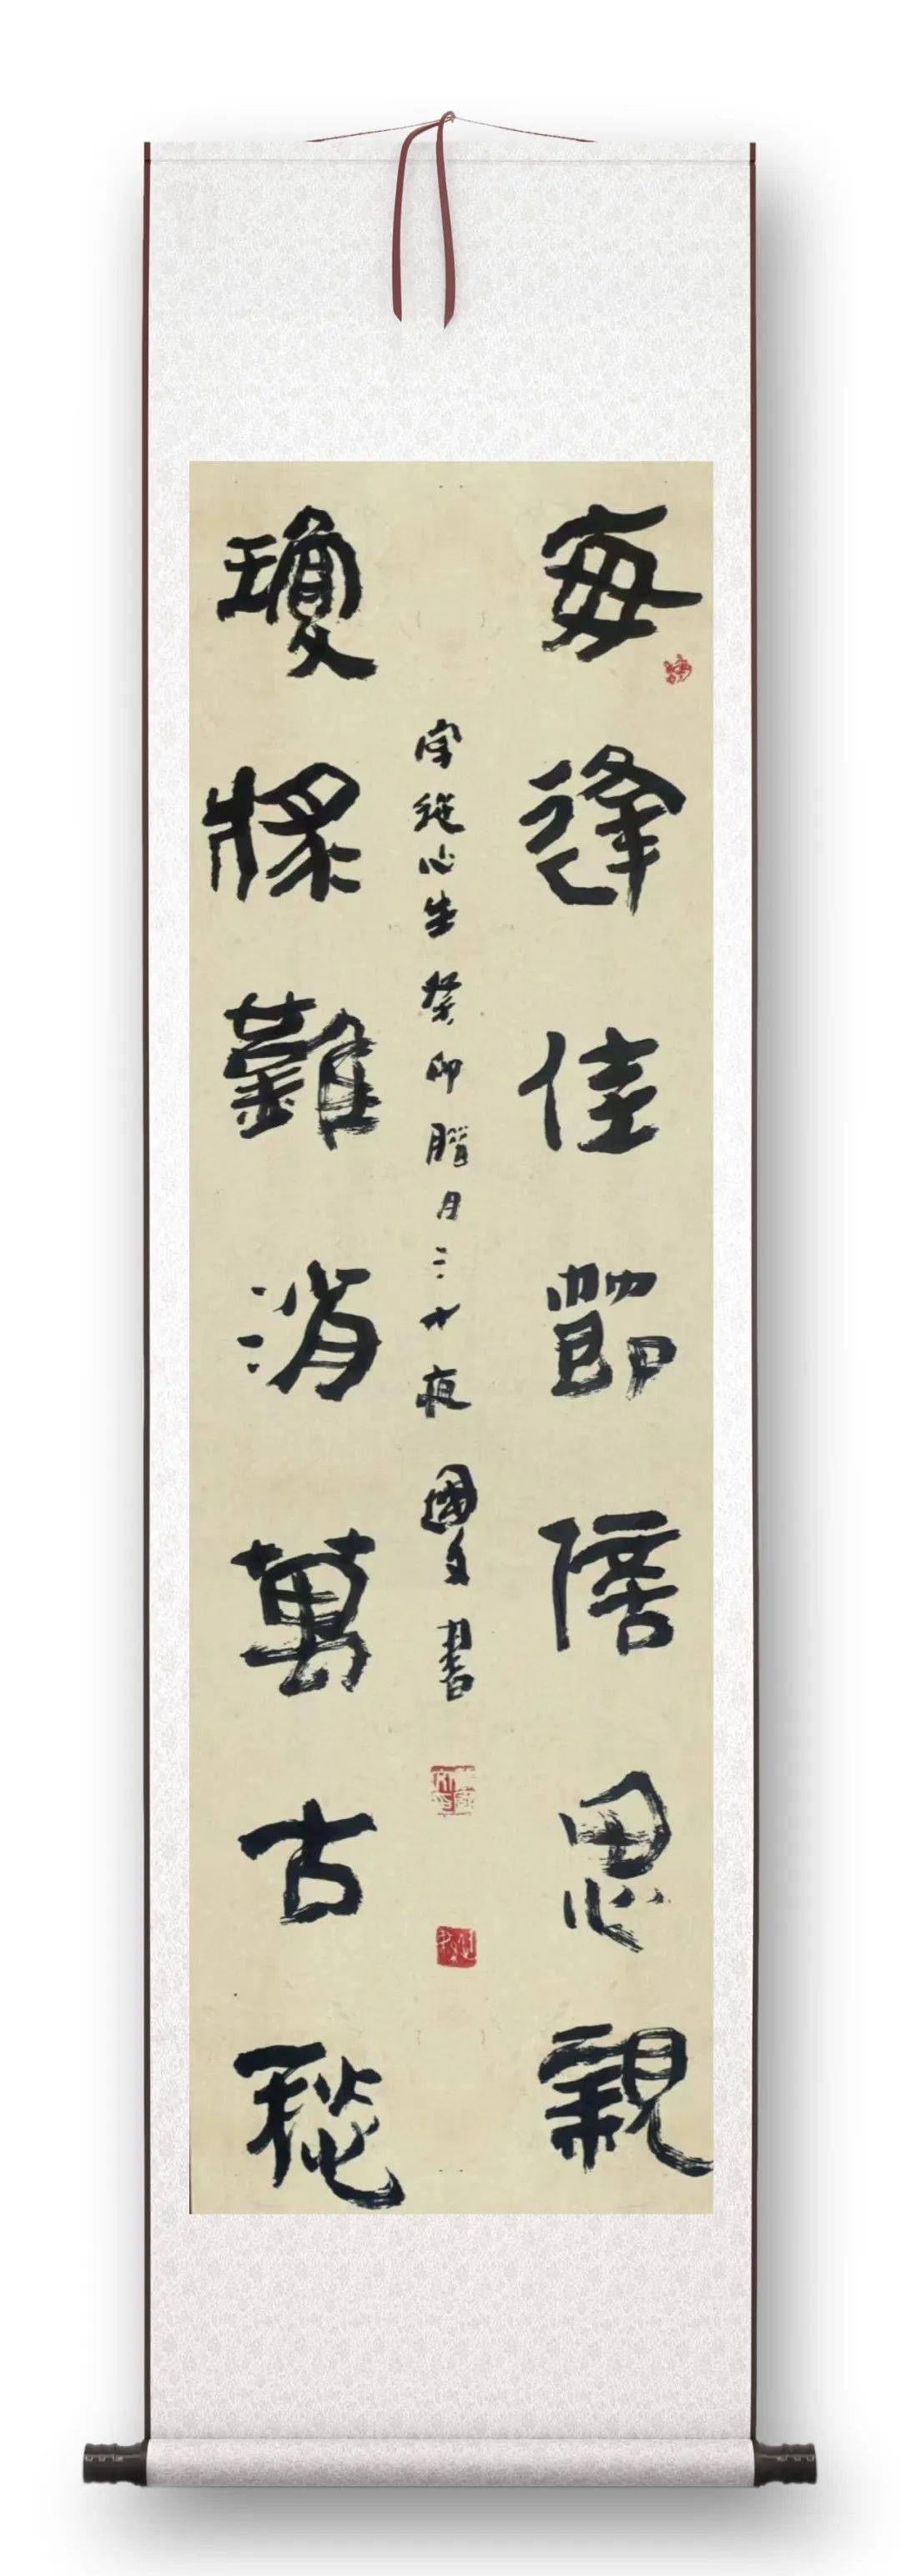 每逢佳節倍思親
瓊漿難消萬古愁
字從心生癸卯臘月三十夜國文書